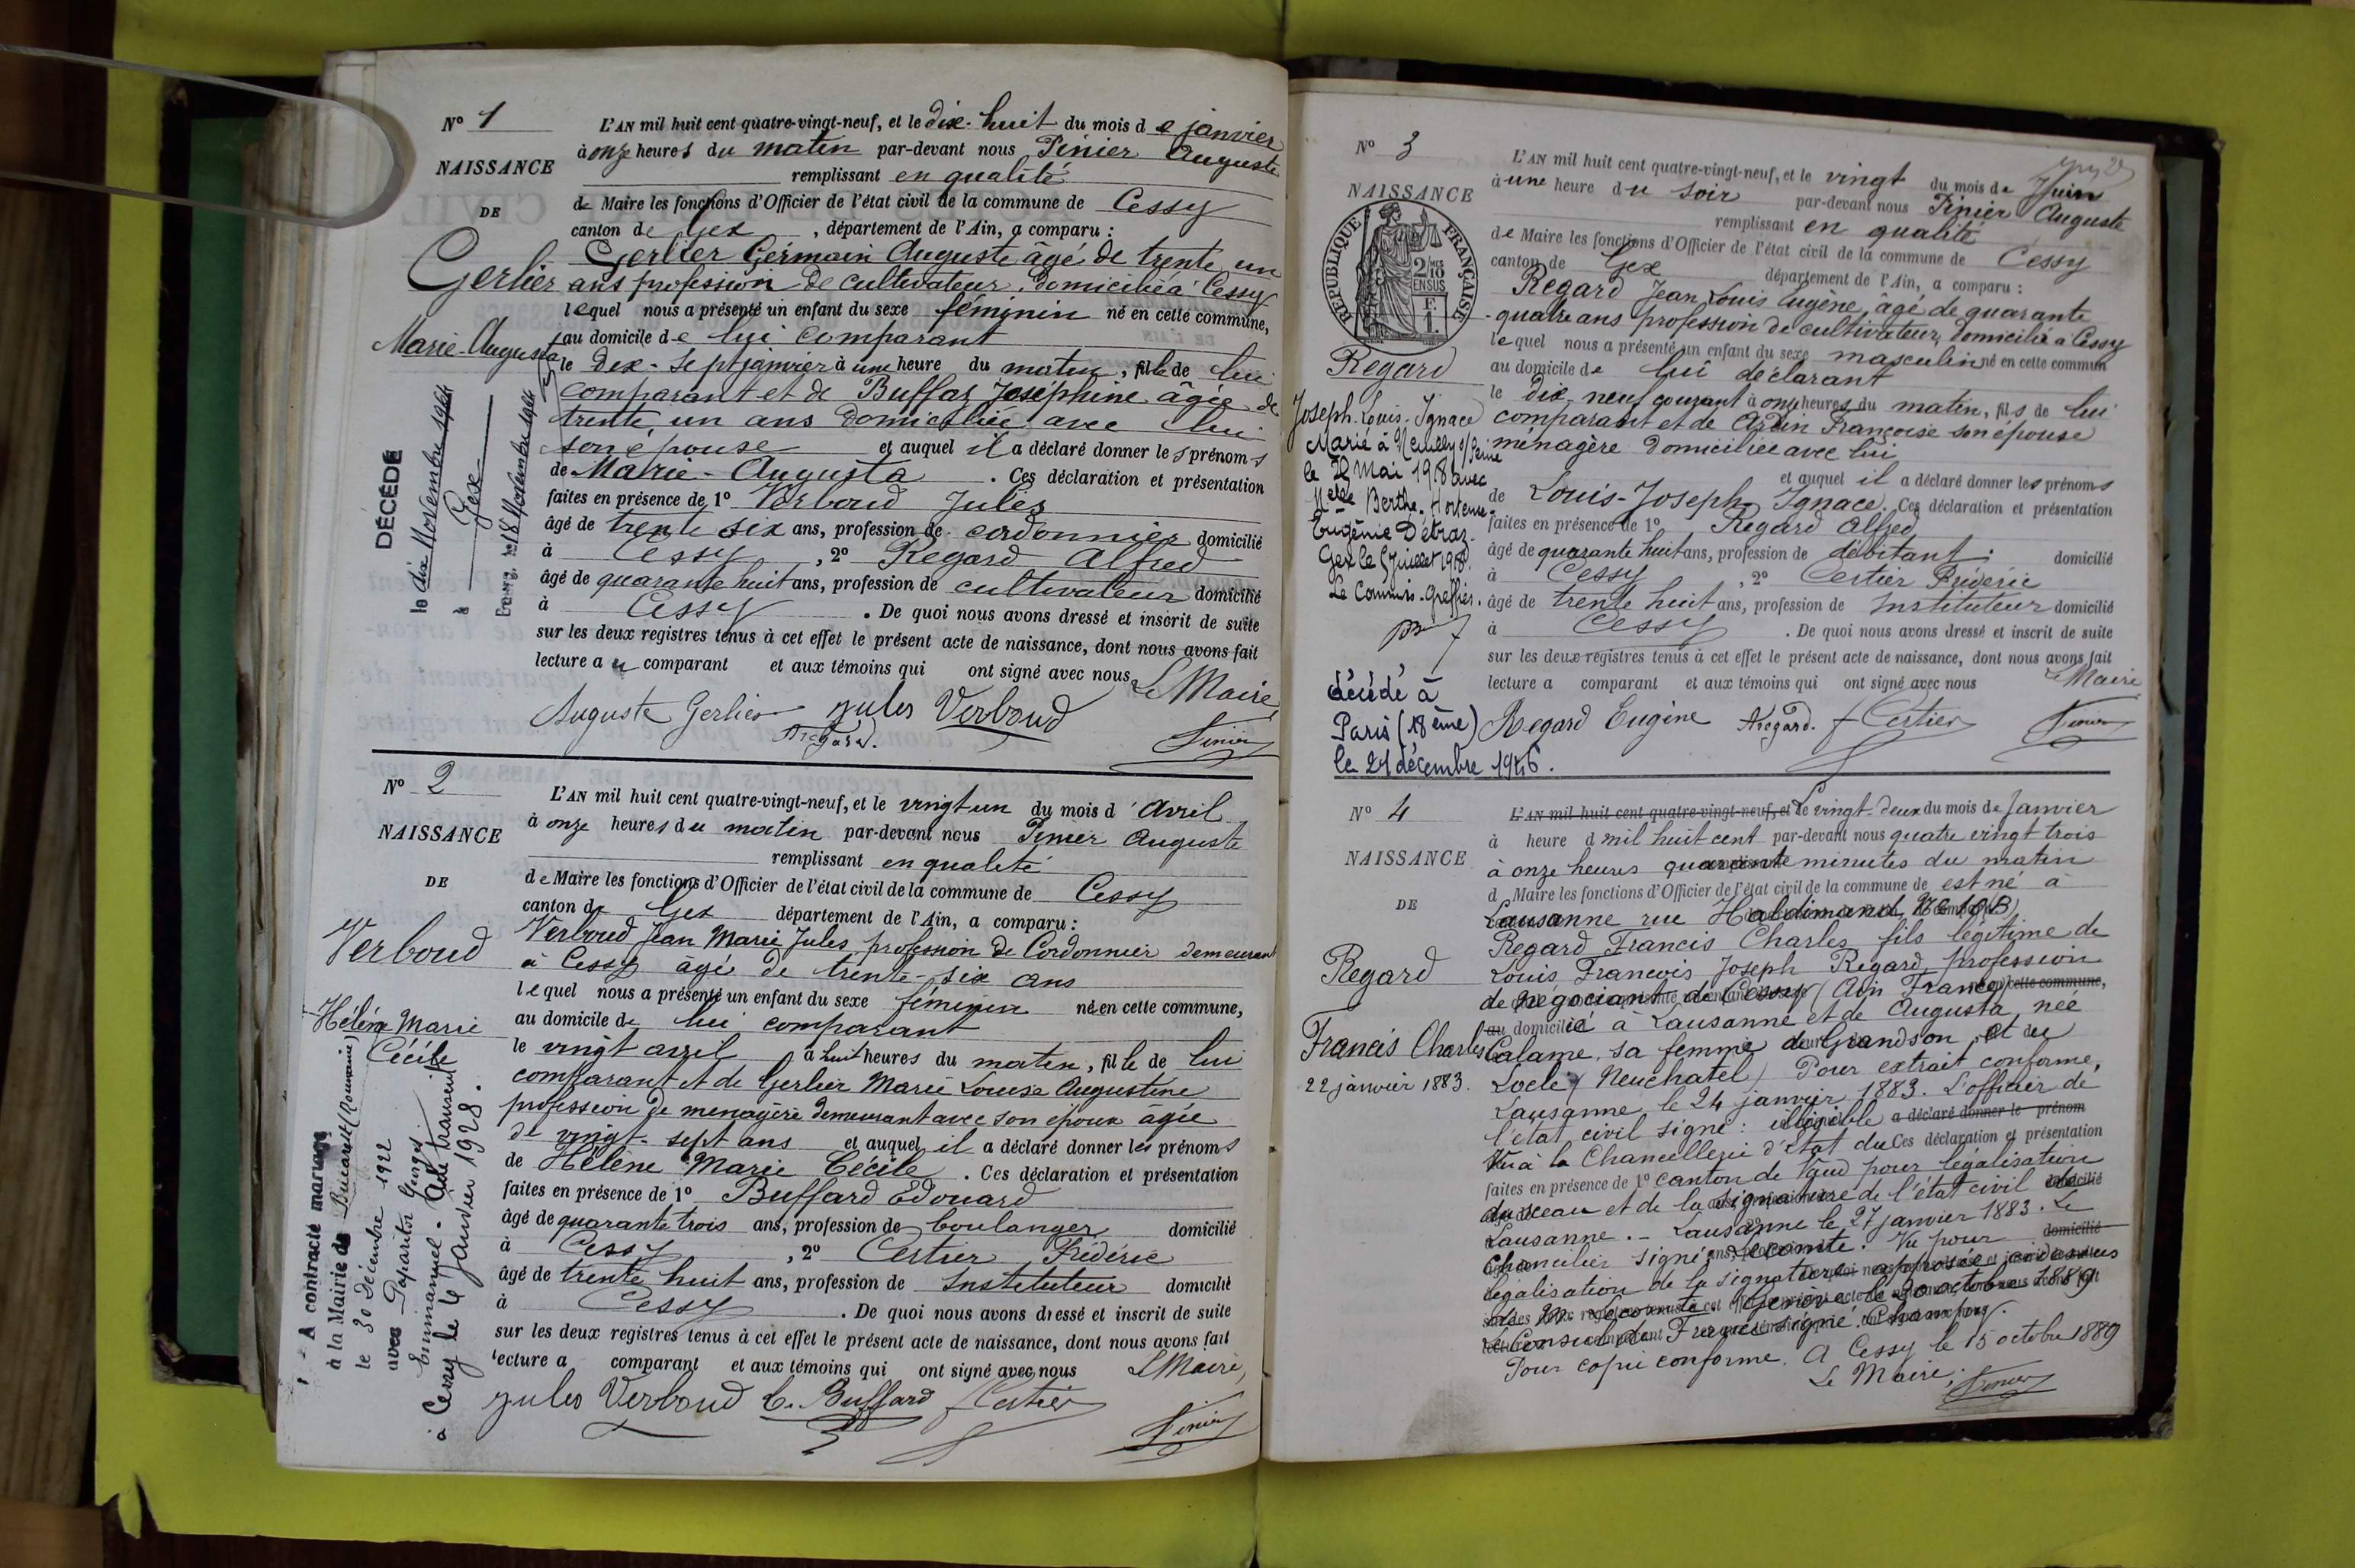 N° 1
NAISSANCE
DE
Gerlier
Marie-Augusta
DÉCÉDÉ
le dix Novembre 1964
à Gex
L'AN mil huit cent quatre-vingt-neuf, et le dix-huit du mois de janvier
à onze heures du matin par-devant nous Pinier Auguste
remplissant en qualité
de Maire les fonctions d'Officier de l'état civil de la commune de Cessy
canton de Gex, département de l'Ain, a comparu :
Gerlier Germain Auguste âgé de trente un
ans profession de cultivateur, domicilié à Cessy
lequel nous a présenté un enfant du sexe féminin né en cette commune,
au domicile de lui comparant
le dix-sept janvier à une heure du matin, fille de lui
comparant et de Buffaz Joséphine âgée de
trente un ans domiciliée avec lui
son épouse et auquel il a déclaré donner les prénoms
de Marie-Augusta. Ces déclaration et présentation
faites en présence de 1° Verboud Jules
âgé de trente six ans, profession de cordonnier domicilié
à Cessy, 2° Regard Alfred
âgé de quarante huit ans, profession de cultivateur domicilié
à Cessy. De quoi nous avons dressé et inscrit de suite
sur les deux registres tenus à cet effet le présent acte de naissance, dont nous avons fait
lecture au comparant et aux témoins qui ont signé avec nous
Le Maire
Auguste Gerlier Jules Verboud
A Regard. Pinier
N° 2
NAISSANCE
DE
Verboud
Hélène Marie
Cécile
A contracté mariage
à la Mairie de Bucarest (Roumanie)
le 30 Décembre 1922
avec Paparitor Georges
Emmanuel. Acte transcrit
à Cessy le 4 Janvier 1928.
L'AN mil huit cent quatre-vingt-neuf, et le vingt un du mois d'Avril
à onze heures du matin par-devant nous Pinier Auguste
remplissant en qualité
de Maire les fonctions d'Officier de l'état civil de la commune de Cessy
canton de Gex département de l'Ain, a comparu :
Verboud Jean Marie Jules profession de Cordonnier demeurant
à Cessy âgé de trente-six ans
lequel nous a présenté un enfant du sexe féminin né en cette commune,
au domicile de lui comparant
le vingt avril à huit heures du matin, fille de lui
comparant et de Gerlier Marie Louise Augustine
profession de menagère demeurant avec son époux agée
de vingt-sept ans et auquel il a déclaré donner les prénoms
de Hélène Marie Cécile. Ces déclaration et présentation
faites en présence de 1° Buffard Edouard
âgé de quarante trois ans, profession de boulanger domicilié
à Cessy, 2° Certier Frédéric
âgé de trente huit ans, profession de Instituteur domicilié
à Cessy. De quoi nous avons dressé et inscrit de suite
sur les deux registres tenus à cet effet le présent acte de naissance, dont nous avons fait
lecture a comparant et aux témoins qui ont signé avec nous
Le Maire,
Jules Verboud E. Buffard F Certier
Pinier
N° 3
NAISSANCE
RÉPUBLIQUE FRANÇAISE
2/10 EN SUS
F. 1.
Regard
Joseph-Louis-Ignace
Marié à Neuilly s/Seine
le 22 Mai 1918 avec
Melle Berthe-Hortense-
Eugénie Détraz.
Gex le 5 Juillet 1918.
Le Commis-Greffier.
décédé à
Paris (18ème)
le 21 décembre 1946.
L'AN mil huit cent quatre-vingt-neuf, et le vingt du mois de Juin
à une heure du soir par-devant nous Pinier Auguste
remplissant en qualité
de Maire les fonctions d'Officier de l'état civil de la commune de Cessy
canton de Gex département de l'Ain, a comparu :
Regard Jean Louis Eugène, âgé de quarante
-quatre ans profession de cultivateur, domicilié à Cessy
lequel nous a présenté un enfant du sexe masculin né en cette commun
au domicile de lui déclarant
le dix-neuf courant à onze heures du matin, fils de lui
comparant et de Ardin Françoise son épouse
ménagère domiciliée avec lui
et auquel il a déclaré donner les prénoms
de Louis-Joseph-Ignace. Ces déclaration et présentation
faites en présence de 1° Regard Alfred
âgé de quarante huit ans, profession de débitant domicilié
à Cessy, 2° Certier Frédéric
âgé de trente huit ans, profession de Instituteur domicilié
à Cessy. De quoi nous avons dressé et inscrit de suite
sur les deux registres tenus à cet effet le présent acte de naissance, dont nous avons fait
lecture a comparant et aux témoins qui ont signé avec nous
Le Maire
Regard Eugène A Regard. F Certier Pinier
N° 4
NAISSANCE
DE
Regard
Francis Charles
22 janvier 1883.
L'AN mil huit cent quatre-vingt-neuf, et Le vingt-deux du mois de Janvier
à heure d mil huit cent par-devant nous quatre vingt trois
à onze heures quarante minutes du matin
d Maire les fonctions d'Officier de l'état civil de la commune de est né à
Lausanne rue Haldimand
Regard Francis Charles fils légitime de
Louis François Joseph Regard profession
de négociant, de Cessy (Ain France) cette commune,
au domicilié à Lausanne et de Augusta née
Calame, sa femme de Grandson et du
Locle (Neuchatel) Pour extrait conforme,
Lausanne, le 24 janvier 1883. L'officier de
l'état civil signé : illisible a déclaré donner le prénom
Vu à la Chancellerie d'état du Ces déclaration et présentation
faites en présence de 1° canton de Vaud pour légalisation
du sceau et de la signature de l'état civil de
Lausanne. - Lausanne le 27 janvier 1883. Le domicilié
Chancelier signé : Lecomte. Vu pour
légalisation de la signature apposée ci-dessus
de M. Lecomte. Genève le 30 octobre 1889
Le Consul de France signé :
Pour copie conforme. A Cessy le 15 octobre 1889
Le Maire, Pinier